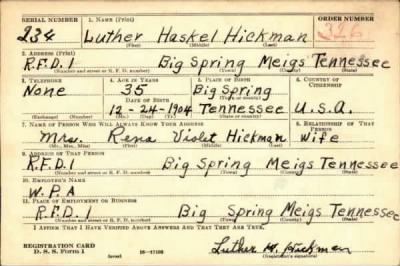 SERIAL NUMBER 1. NAME (Print) ORDER NUMBER
234 Luther Haskel Hickman 326
(First) (Middle) (Last)
2. ADDRESS (Print)
R.F.D.1 Big Spring Meigs Tennessee
(Number and street or R. F. D. number) (Town) (County) (State)
3. TELEPHONE 4. AGE IN YEARS 5. PLACE OF BIRTH 6. COUNTRY OF CITIZENSHIP
None 35 Big Spring
(Town or county)
DATE OF BIRTH
12-24-1904 Tennessee U.S.A.
(Exchange) (Number) (Mo.) (Day) (Yr.) (State or country)
7. NAME OF PERSON WHO WILL ALWAYS KNOW YOUR ADDRESS 8. RELATIONSHIP OF THAT PERSON
Mrs. Rena Violet Hickman Wife
(Mr., Mrs., Miss) (First) (Middle) (Last)
9. ADDRESS OF THAT PERSON
R.F.D.1 Big Spring Meigs Tennessee
(Number and street or R. F. D. number) (Town) (County) (State)
10. EMPLOYER'S NAME
W.P.A
11. PLACE OF EMPLOYMENT OR BUSINESS
R.F.D.1 Big Spring Meigs Tennessee
(Number and street or R. F. D. number) (Town) (County) (State)
I AFFIRM THAT I HAVE VERIFIED ABOVE ANSWERS AND THAT THEY ARE TRUE.
REGISTRATION CARD
D. S. S. Form 1 Luther H. Hickman
(over) (Registrant's signature)